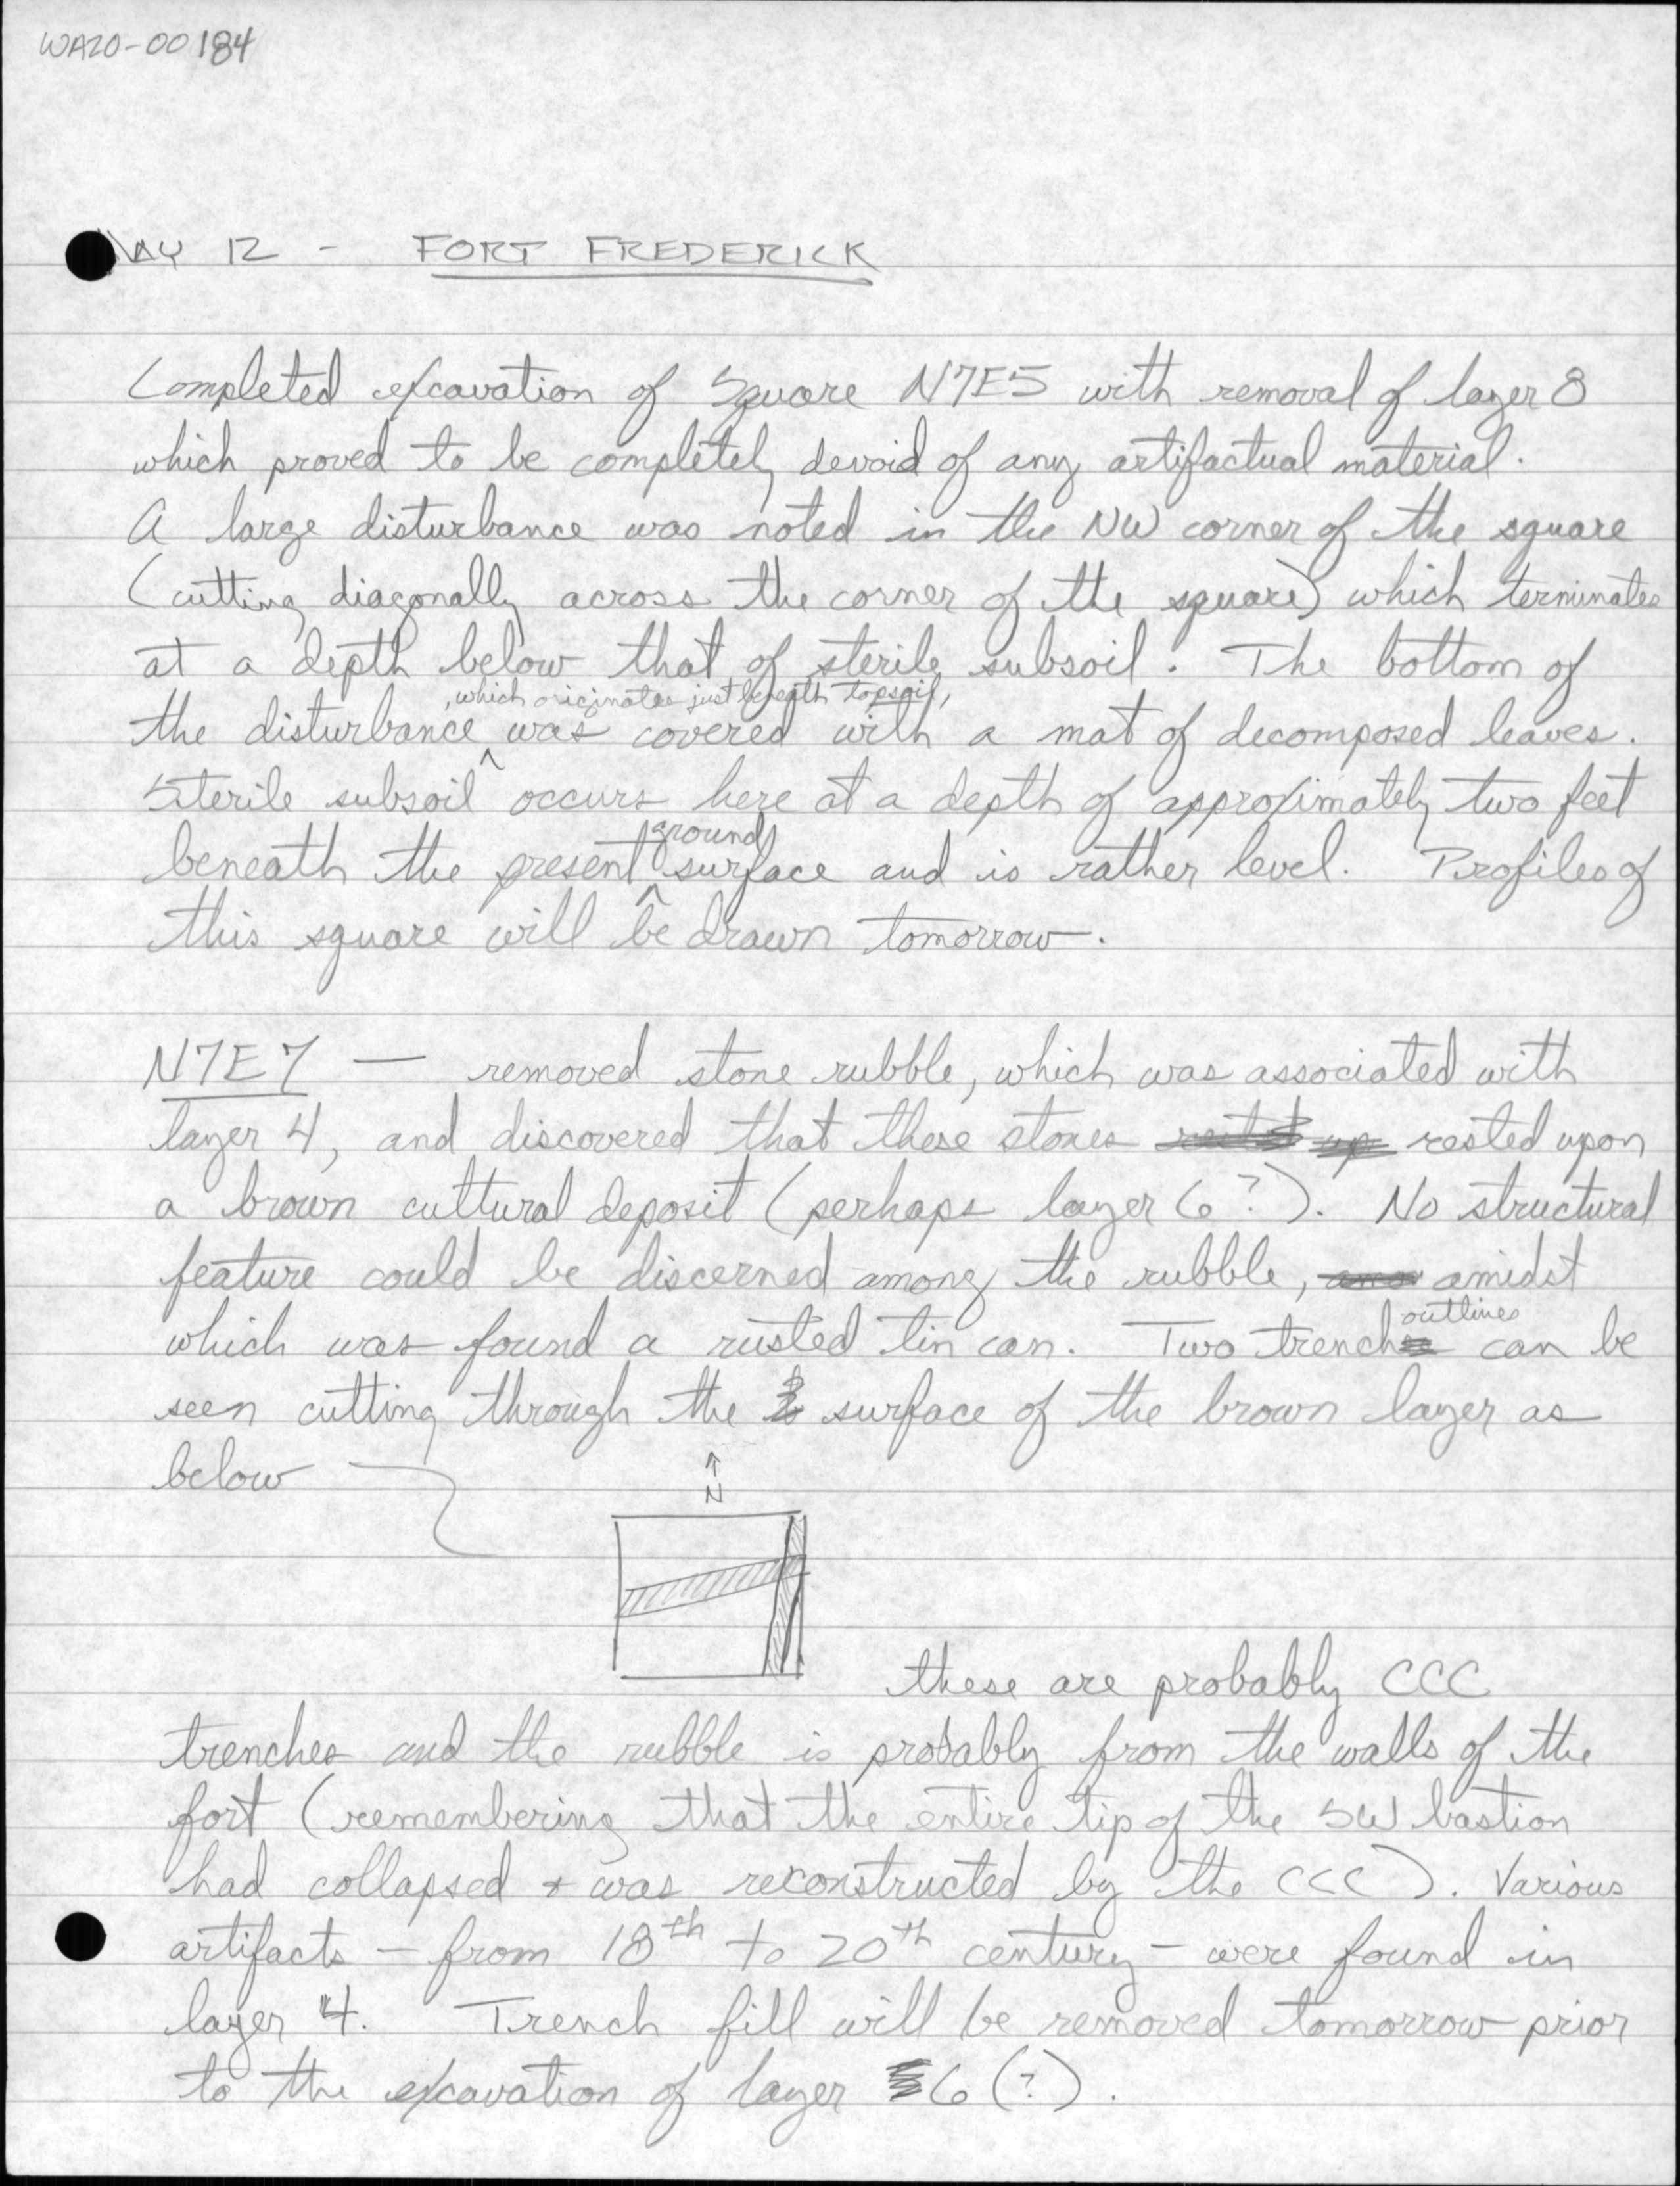 WA20-00184
MAY 12 - FORT FREDERICK
Completed excavation of Square N7E5 with removal of layer 8
which proved to be completely devoid of any artifactual material.
A large disturbance was noted in the NW corner of the square
(cutting diagonally across the corner of the square) which terminates
at a depth below that of sterile subsoil. The bottom of
the disturbance, which originates just beneath topsoil, was covered with a mat of decomposed leaves.
Sterile subsoil occurs here at a depth of approximately two feet
beneath the present ground surface and is rather level. Profiles of
this square will be drawn tomorrow.
N7E7 — removed stone rubble, which was associated with
layer 4, and discovered that these stones rested upon
a brown cultural deposit (perhaps layer 6?). No structural
feature could be discerned among the rubble, amidst
which was found a rusted tin can. Two trench outlines can be
seen cutting through the surface of the brown layer as
below
N
these are probably CCC
trenches and the rubble is probably from the walls of the
fort (remembering that the entire tip of the SW bastion
had collapsed + was reconstructed by the CCC). Various
artifacts - from 18th to 20th century - were found in
layer 4. Trench fill will be removed tomorrow prior
to the excavation of layer 6 (?).